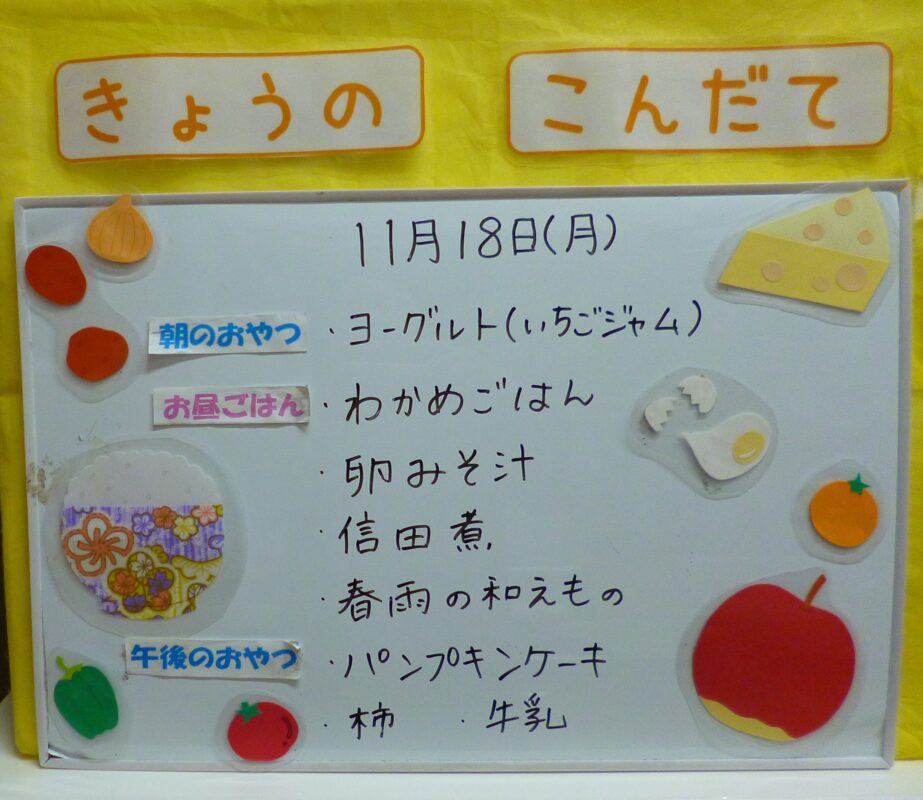 きょうの こんだて
11月18日(月)
朝のおやつ ・ヨーグルト(いちごジャム)
お昼ごはん ・わかめごはん
・卵みそ汁
・信田煮
・春雨の和えもの
午後のおやつ ・パンプキンケーキ
・柿 ・牛乳